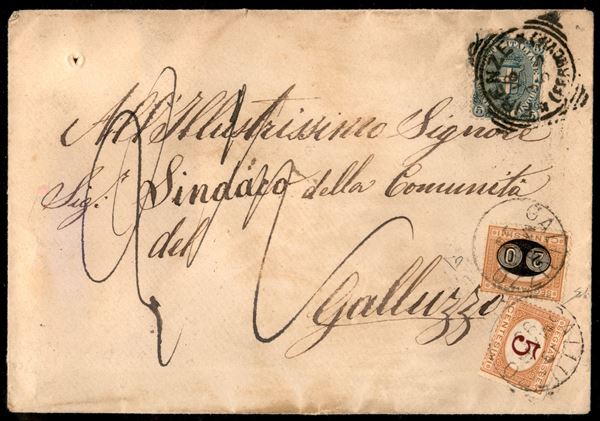 All'Illustrissimo Signore
Sig.r Sindaco della Comunità
del
Galluzzo
FIRENZE
(FERROVIA)
20
GALLUZZO
5